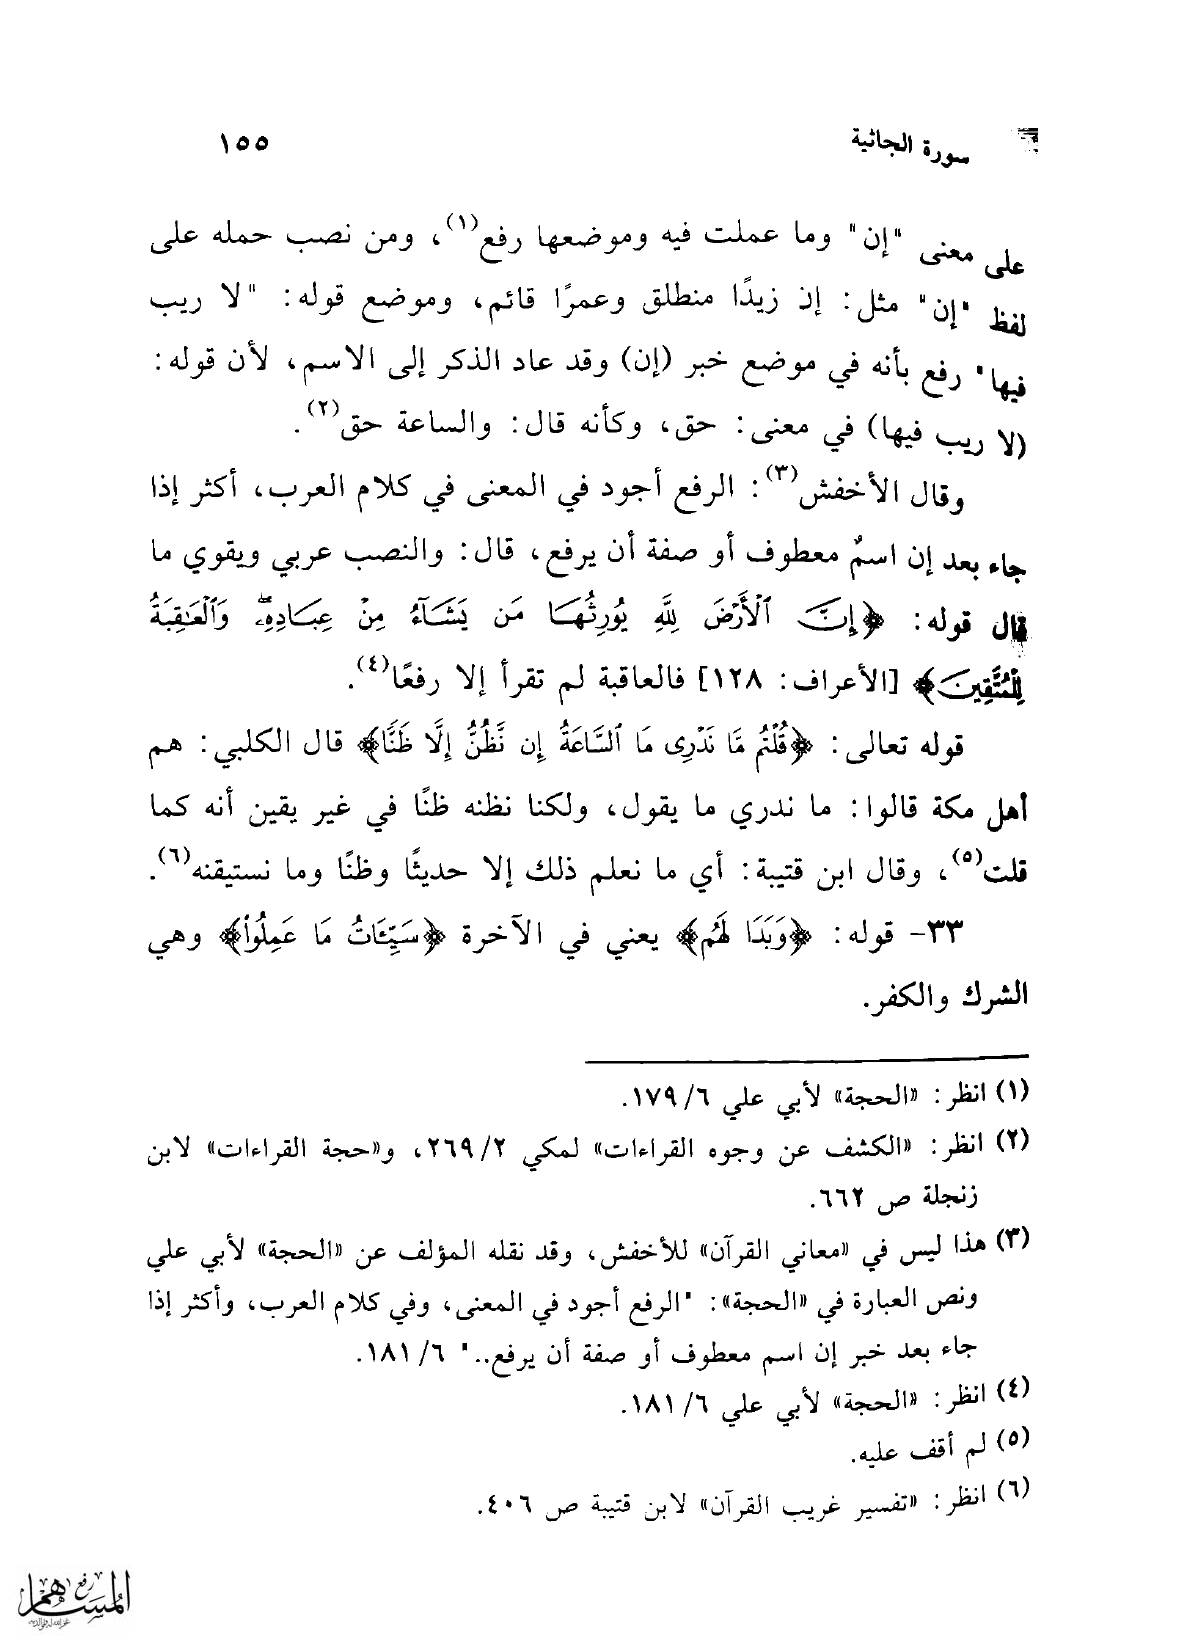 سورة الجاثية ١٥٥
على معنى "إن" وما عملت فيه وموضعها رفع(١)، ومن نصب حمله على
لفظ "إن" مثل: إن زيدًا منطلق وعمرًا قائم، وموضع قوله: "لا ريب
فيها" رفع بأنه في موضع خبر (إن) وقد عاد الذكر إلى الاسم، لأن قوله:
(لا ريب فيها) في معنى: حق، وكأنه قال: والساعة حق(٢).
وقال الأخفش(٣): الرفع أجود في المعنى في كلام العرب، أكثر إذا
جاء بعد إن اسمٌ معطوف أو صفة أن يرفع، قال: والنصب عربي ويقوي ما
قال قوله: ﴿إِنَّ ٱلْأَرْضَ لِلَّهِ يُورِثُهَا مَن يَشَآءُ مِنْ عِبَادِهِۦۖ وَٱلْعَٰقِبَةُ
لِلْمُتَّقِينَ﴾ [الأعراف: ١٢٨] فالعاقبة لم تقرأ إلا رفعًا(٤).
قوله تعالى: ﴿قُلْتُم مَّا نَدْرِى مَا ٱلسَّاعَةُ إِن نَّظُنُّ إِلَّا ظَنًّا﴾ قال الكلبي: هم
أهل مكة قالوا: ما ندري ما يقول، ولكنا نظنه ظنًا في غير يقين أنه كما
قلت(٥)، وقال ابن قتيبة: أي ما نعلم ذلك إلا حديثًا وظنًا وما نستيقنه(٦).
٣٣- قوله: ﴿وَبَدَا لَهُمْ﴾ يعني في الآخرة ﴿سَيِّـَٔاتُ مَا عَمِلُوا۟﴾ وهي
الشرك والكفر.
(١) انظر: «الحجة» لأبي علي ٦/ ١٧٩.
(٢) انظر: «الكشف عن وجوه القراءات» لمكي ٢/ ٢٦٩، و«حجة القراءات» لابن
زنجلة ص ٦٦٢.
(٣) هذا ليس في «معاني القرآن» للأخفش، وقد نقله المؤلف عن «الحجة» لأبي علي
ونص العبارة في «الحجة»: "الرفع أجود في المعنى، وفي كلام العرب، وأكثر إذا
جاء بعد خبر إن اسم معطوف أو صفة أن يرفع.." ٦/ ١٨١.
(٤) انظر: «الحجة» لأبي علي ٦/ ١٨١.
(٥) لم أقف عليه.
(٦) انظر: «تفسير غريب القرآن» لابن قتيبة ص ٤٠٦.